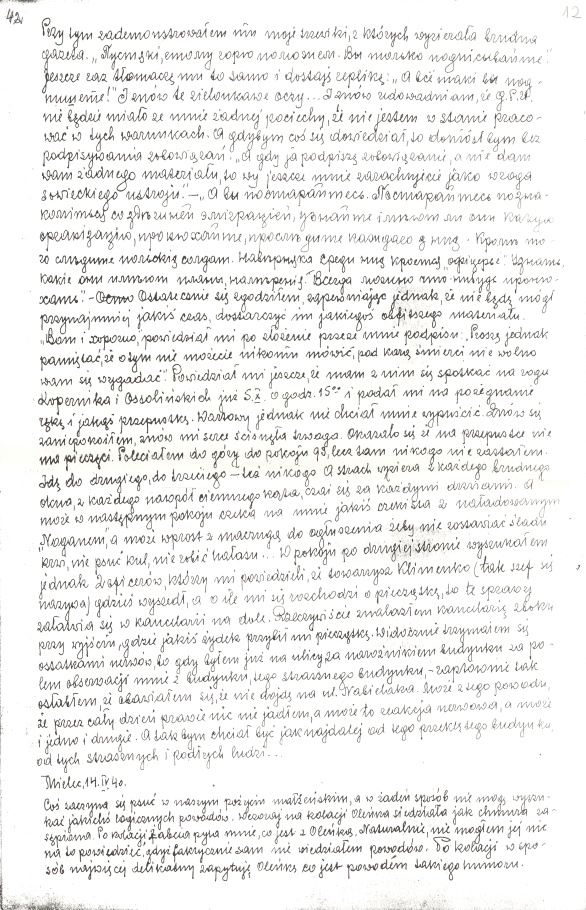 42 12
Przy tym zademonstrowałem mu moje trzewiki, z których wyzierała brudna
gazeta. "
Jeszcze raz tłomaczę mu to samo i dostaję replikę: "А всё таки вы под-
пишете!" I znów te zielonkawe oczy... I znów udowadniam, że G.P.U.
nie będzie miało ze mnie żadnej pociechy, że nie jestem w stanie praco-
wać w tych warunkach. A gdybym coś się dowiedział, to doniósłbym bez
podpisywania zobowiązań. "A gdy ja podpiszę zobowiązanie, a nie dam
wam żadnego materiału, to wy jeszcze mnie zaaresztujecie jako wroga
sowieckiego ustroju" — "А вы постарайтесь. Постарайтесь позна-
комиться со здешней эмиграцией, узнайте имеют ли они какую
организацию, пронюхайте, проследите каждого з них. Кроме то-
го следите польских солдат. Наверняка среди них кроются офицеры. Узнать
какие они имеют планы,
" - Ostatecznie się zgodziłem, zapewniając jednak, że nie będę mógł
przynajmniej jakiś czas, dostarczyć im jakiegoś obfitszego materiału.
"Вот и хорошо, powiedział mi po złożeniu przeze mnie podpisu. Proszę jednak
pamiętać, że o tym nie możecie nikomu mówić, pod karą śmierci nie wolno
wam się wygadać." Powiedział mi jeszcze, że mam z nim się spotkać na rogu
Kopernika i Ossolińskich już 5.X. o godz. 15°° i podał mi na pożegnanie
rękę i jakąś przepustkę. Wartowy jednak nie chciał mnie wypuścić. Znów się
zaniepokoiłem, znów mi serce ścisnęła trwoga. Okazało się że na przepustce nie
ma pieczęci. Poleciałem do góry do pokoju 95, lecz tam nikogo nie zastałem.
Idę do drugiego, do trzeciego – też nikogo. A strach wyziera z każdego brudnego
okna, z każdego naspół ciemnego kąta, czai się za każdymi drzwiami. A
może w następnym pokoju czeka na mnie jakiś czekista z naładowanym
"Naganem", a może wprost z maczugą do ogłuszenia żeby nie zostawiać śladu
krwi, nie psuć kul, nie robić hałasu... W pokoju po drugiej stronie wyszukałem
jednak 2 oficerów, którzy mi powiedzieli, że towarzysz Klimenko (tak szef się
nazywa) gdzieś wyszedł, a o ile mi się rozchodzi o pieczątkę, to te sprawy
załatwia się w kancelarii na dole. Rzeczywiście znalazłem kancelarię z boku
przy wyjściu, gdzie jakiś żydek przybił mi pieczątkę. Widocznie trzymałem się
ostatkami nerwów, bo gdy byłem już na ulicy za narożnikiem budynku za po-
lem obserwacji mnie z budynku, tego strasznego budynku, - raptownie tak
osłabłem, że obawiałem się, że nie dojdę na ul. Nabielaka. Może z tego powodu,
że przez cały dzień prawie nic nie jadłem, a może to reakcja nerwowa, a może
i jedno i drugie. A tak bym chciał być jaknajdalej od tego przeklętego budynku,
od tych strasznych i podłych ludzi...
Mielec, 14.IV.40.
Coś zaczyna się psuć w naszym pożyciu małżeńskim, a w żaden sposób nie mogę wyszu-
kać jakichś logicznych powodów. Wczoraj na kolacji Oleńka siedziała jak chmura za-
sępiona. Po kolacji babcia pyta mnie, co jest z Oleńką. Naturalnie, nie mogłem jej nic
na to powiedzieć, gdyż faktycznie sam nie wiedziałem powodów. Po kolacji w spo-
sób najwięcej delikatny zapytuję Oleńkę co jest powodem takiego humoru.